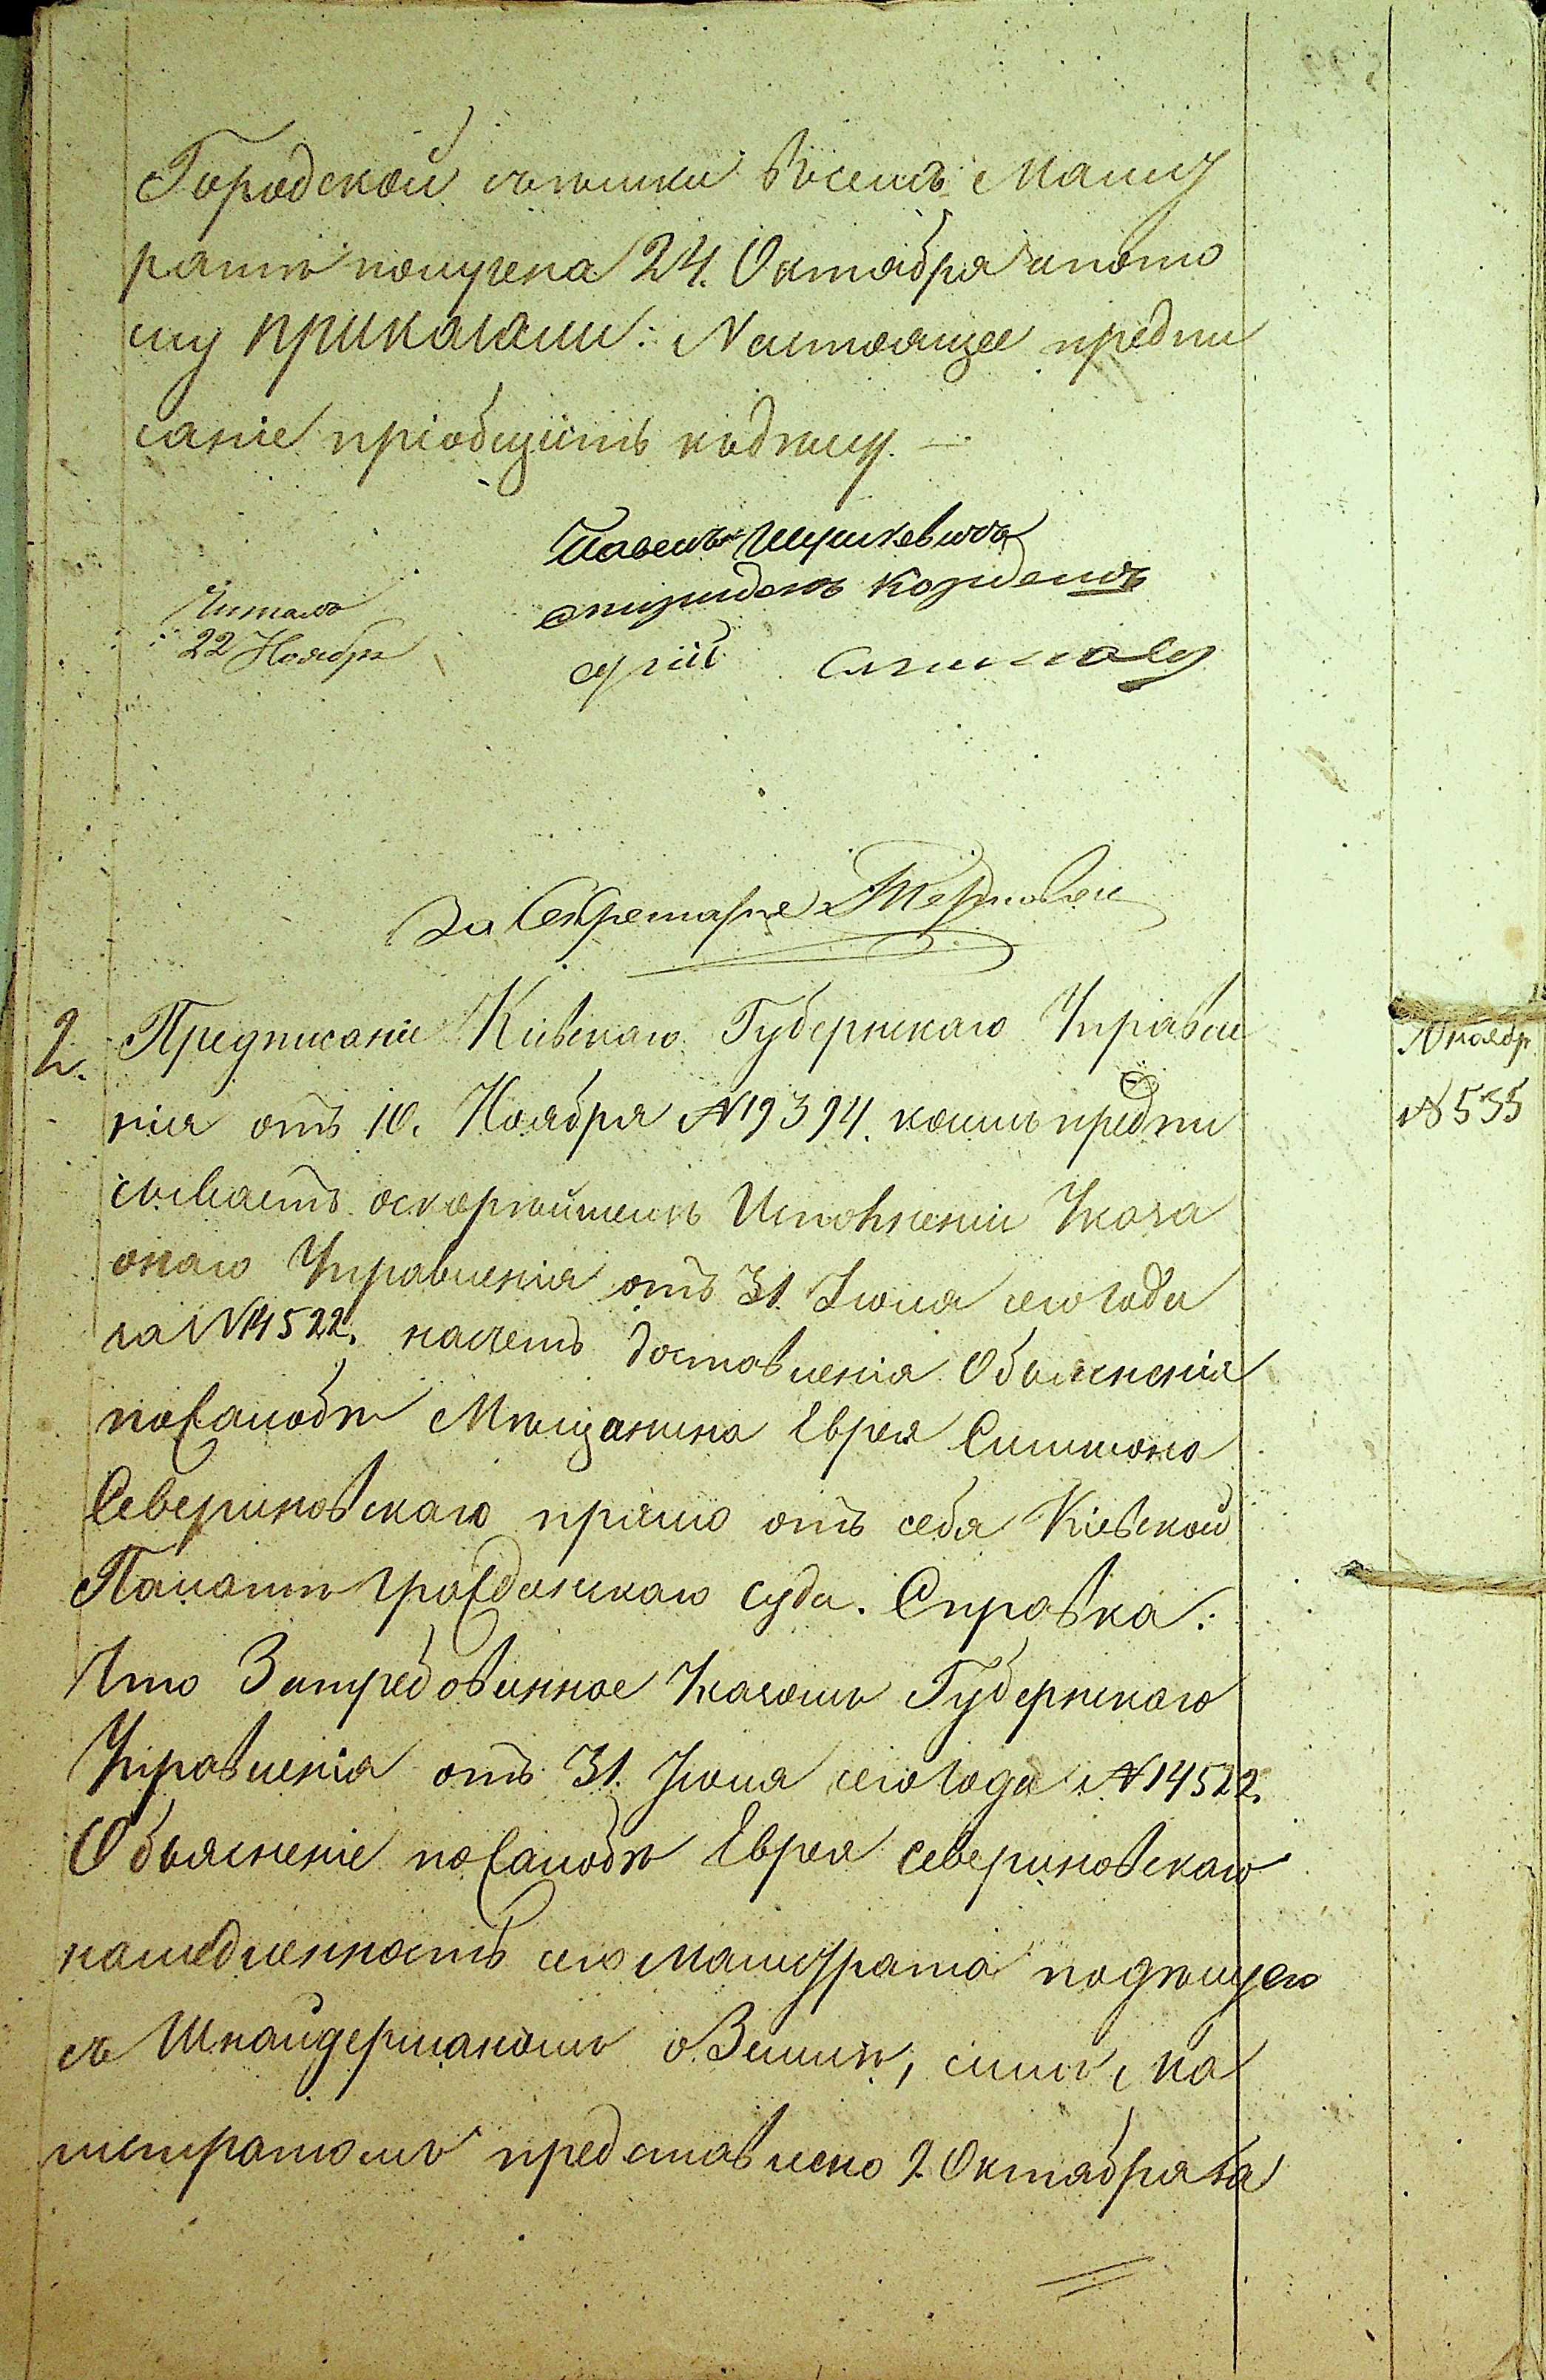 Городской
ратѣ получена 24. Октября и пото
му приказали: Настоящее предпи
саніе пріобщить къ дѣлу. —
Павелъ
Читалъ
22 Ноября
За Секретаря
2. Предписаніе Кіевскаго Губернскаго Правле
нія отъ 10. Ноября №19394. коимъ предпи
сываетъ о скорѣйшемъ Исполненіи Указа
онаго Правленія отъ 31. Іюля сего года
за №14522. насчетъ доставленія Объясненія
по жалобѣ Мѣщанина Еврея
Севериновскаго прямо отъ себя Кіевской
Палатѣ Гражданскаго суда. Справка:
Что Затребованное Указомъ Губернскаго
Правленія отъ 31. Іюля сего года №14522.
Объясненіе по жалобѣ Еврея Севериновскаго
на медленность сего Магистрата по дѣлу его
съ Шнайдерманомъ о Землѣ, симъ Ма
гистратомъ представлено 2. Октября за
10 ноябр
№ 535